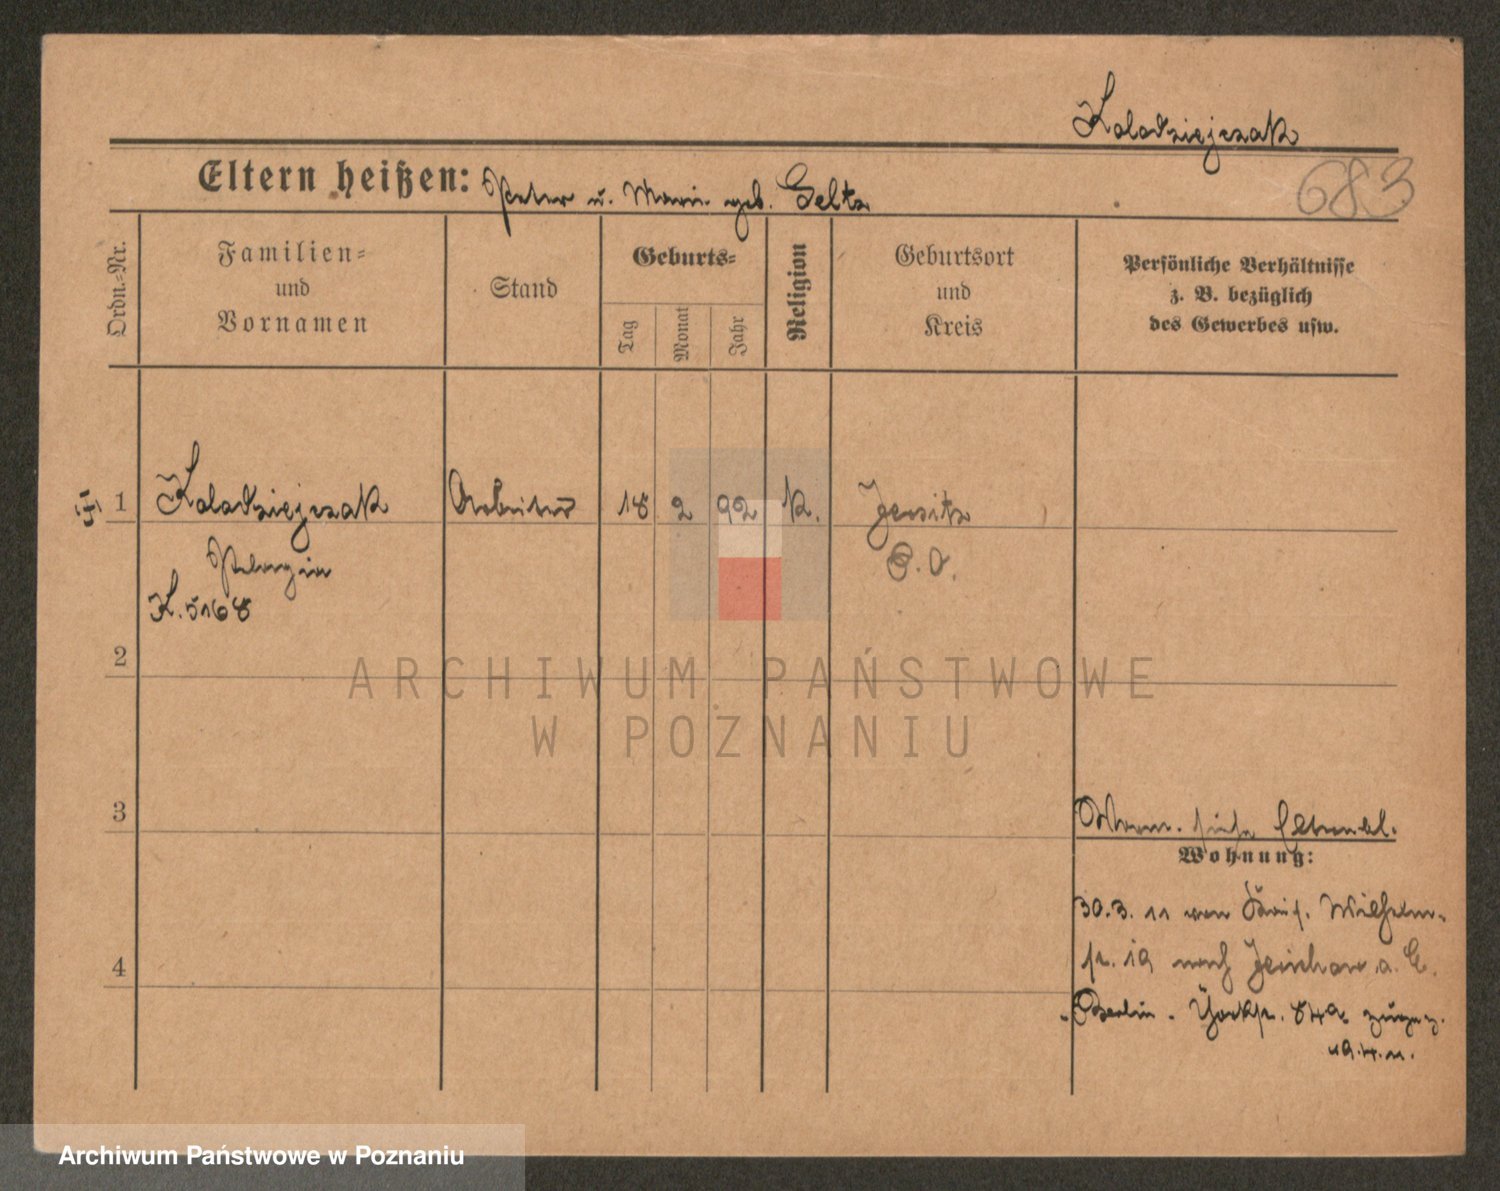 Kolodziejczak
683
Eltern heißen: Peter u. Marie geb. Seltz
Ordn.=Nr.
Familien=
und
Vornamen
Stand
Geburts=
Tag
Monat
Jahr
Religion
Geburtsort
und
Kreis
Persönliche Verhältnisse
z. B. bezüglich
des Gewerbes usw.
1 Kolodziejczak Arbeiterin 18 2 92 K. Jersitz
Pelagia P. O.
K. 5168
2
ARCHIWUM PAŃSTWOWE
W POZNANIU
3
siehe
Wohnung:
30.3. 11 von Wilhelm-
str. 19 nach Jerichow a. E.
4
Berlin. Yorkstr. 84a
19.4.11.
Archiwum Państwowe w Poznaniu